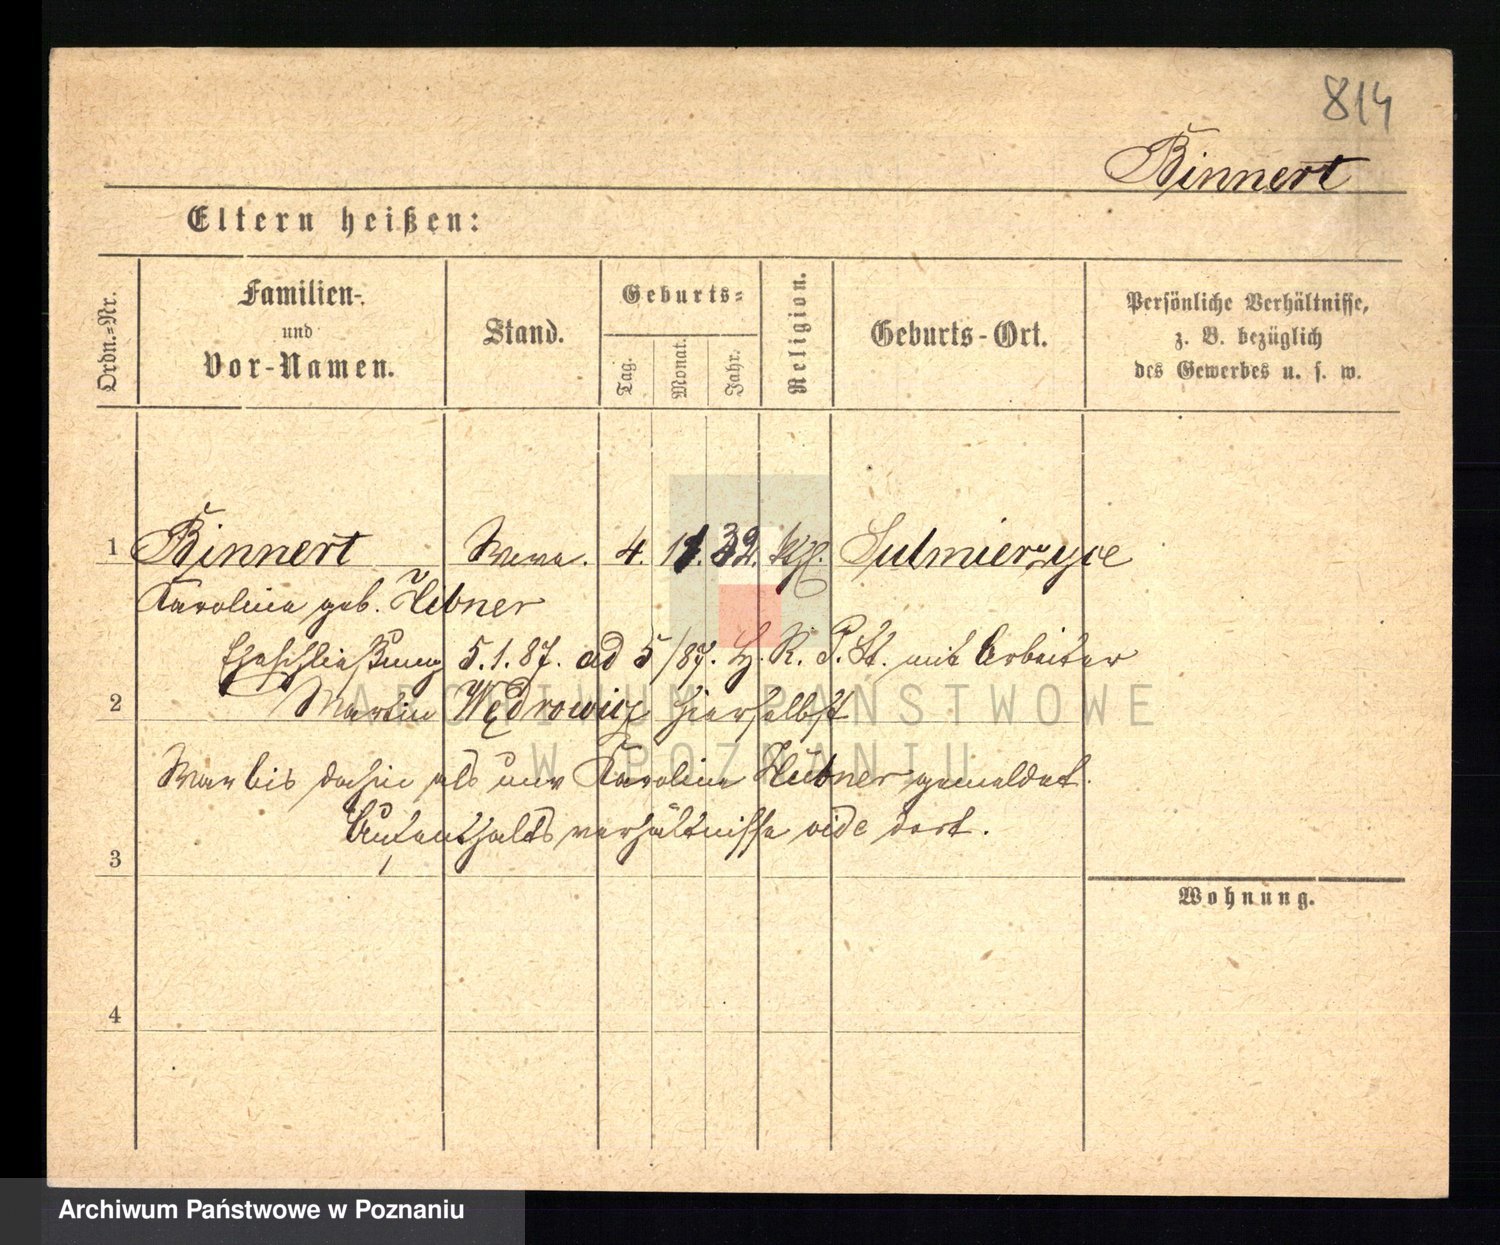 814
Binnert
Eltern heißen:
Ordn.-Nr.
Familien-
und
Vor-Namen.
Stand.
Geburts-
Tag.
Monat.
Jahr.
Religion.
Geburts-Ort.
Persönliche Verhältnisse,
z. B. bezüglich
des Gewerbes u. s. w.
1 Binnert Wwe. 4. 11. 32. kth. Sulmierzyce
Karoline geb. Hebner
Eheschließung 5.1.87. ad 5/87. H. R. P. St. mit Arbeiter
2 Martin Wędrowicz hierselbst
War bis dahin als unv Karoline Hübner gemeldet.
Aufenthaltsverhältnisse vide dort.
3
Wohnung.
4
ARCHIWUM PAŃSTWOWE
W POZNANIU
Archiwum Państwowe w Poznaniu